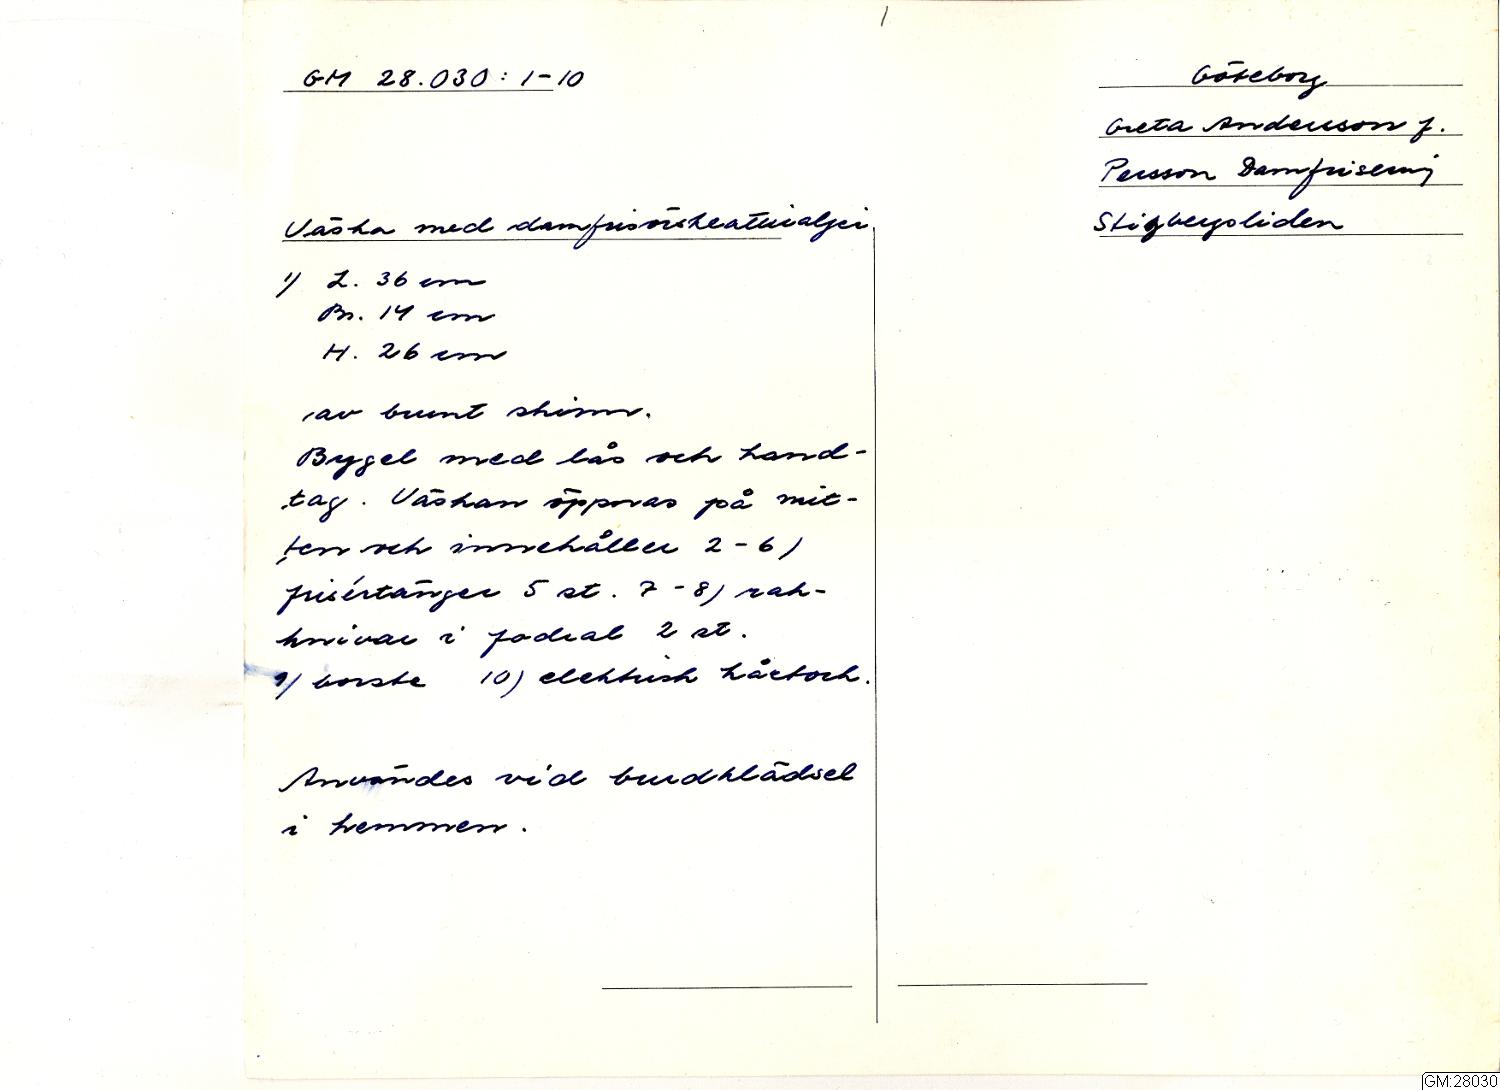 GM 28.030:1-10
Göteborg
Greta Andersson f.
Persson Damfrisering
Stigbergsliden
Väska med damfrisörskeattiraljer.
1) L. 36 cm
Br. 14 cm
H. 26 cm
av brunt skinn.
Bygel med lås och hand-
tag. Väskan öppnas på mit-
ten och innehåller 2-6)
frisértänger 5 st. 7-8) rak-
knivar i fodral 2 st.
9) borste 10) elektrisk hårtork.
Användes vid brudklädsel
i hemmen.
GM:28030